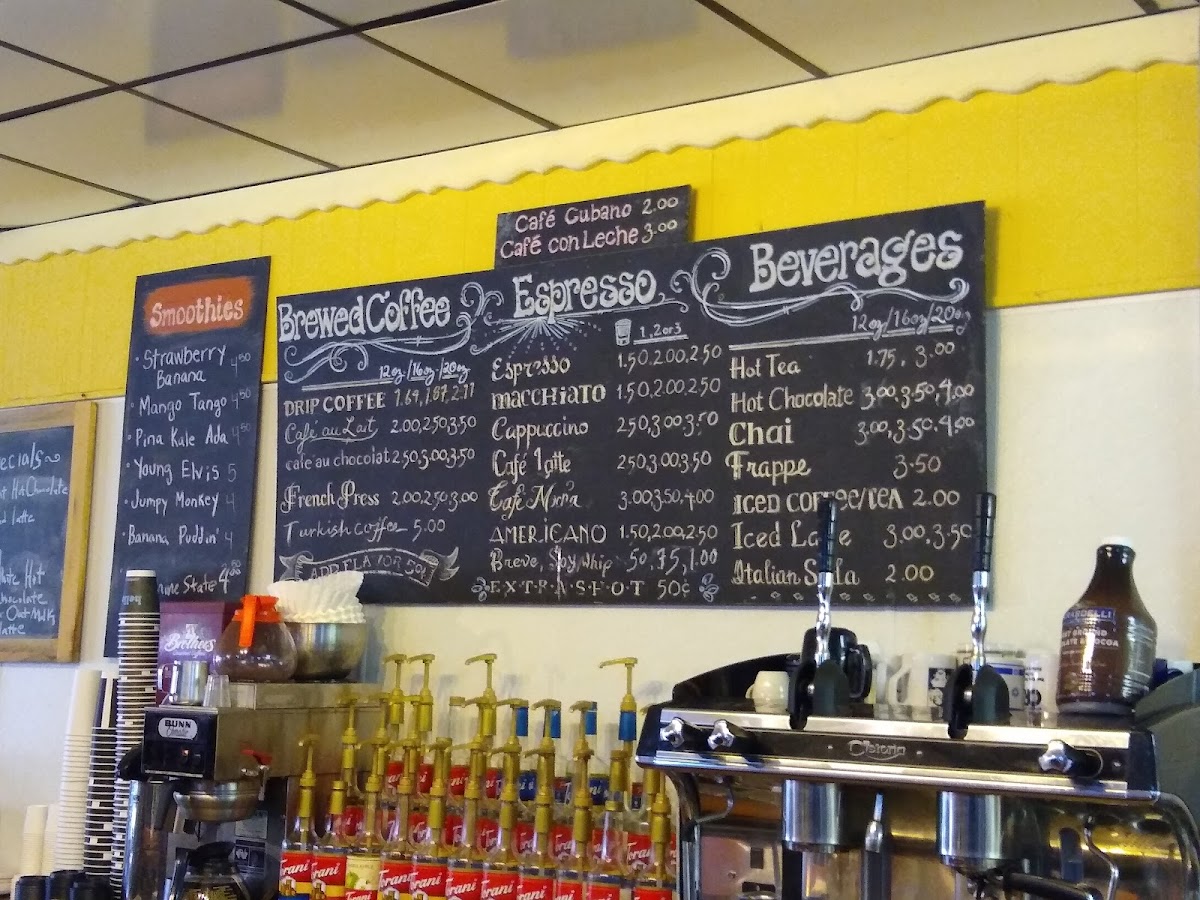 Café Cubano 2.00
Café con Leche 3.00
Smoothies
• Strawberry Banana 4.50
• Mango Tango 4.50
• Pina Kale Ada 4.50
• Young Elvis 5
• Jumpy Monkey 4
• Banana Puddin' 4
State 4.50
Hot Chocolate
latte
Hot
Chocolate
Oat Milk
latte
Brewed Coffee
12oz/16oz/20oz
DRIP COFFEE 1.69, 1.87, 2.11
Café au Lait 2.00, 2.50, 3.50
café au chocolat 2.50, 3.00, 3.50
French Press 2.00, 2.50, 3.00
Turkish coffee 5.00
ADD FLAVOR 50¢
Espresso
1, 2 or 3
Espresso 1.50, 2.00, 2.50
MACCHIATO 1.50, 2.00, 2.50
Cappuccino 2.50, 3.00, 3.50
Café Latte 2.50, 3.00, 3.50
Café 3.00, 3.50, 4.00
AMERICANO 1.50, 2.00, 2.50
Breve, Soy, Whip .50, .75, 1.00
E·X·T·R·A·S·H·O·T 50¢
Beverages
12oz/16oz/20oz
Hot Tea 1.75, 3.00
Hot Chocolate 3.00, 3.50, 4.00
Chai 3.00, 3.50, 4.00
Frappe 3.50
ICED COFFEE/TEA 2.00
Iced 3.00, 3.50
Italian 2.00
Brothers
BUNN
Torani
Torani
Torani
Torani
Torani
Torani
Torani
Torani
Torani